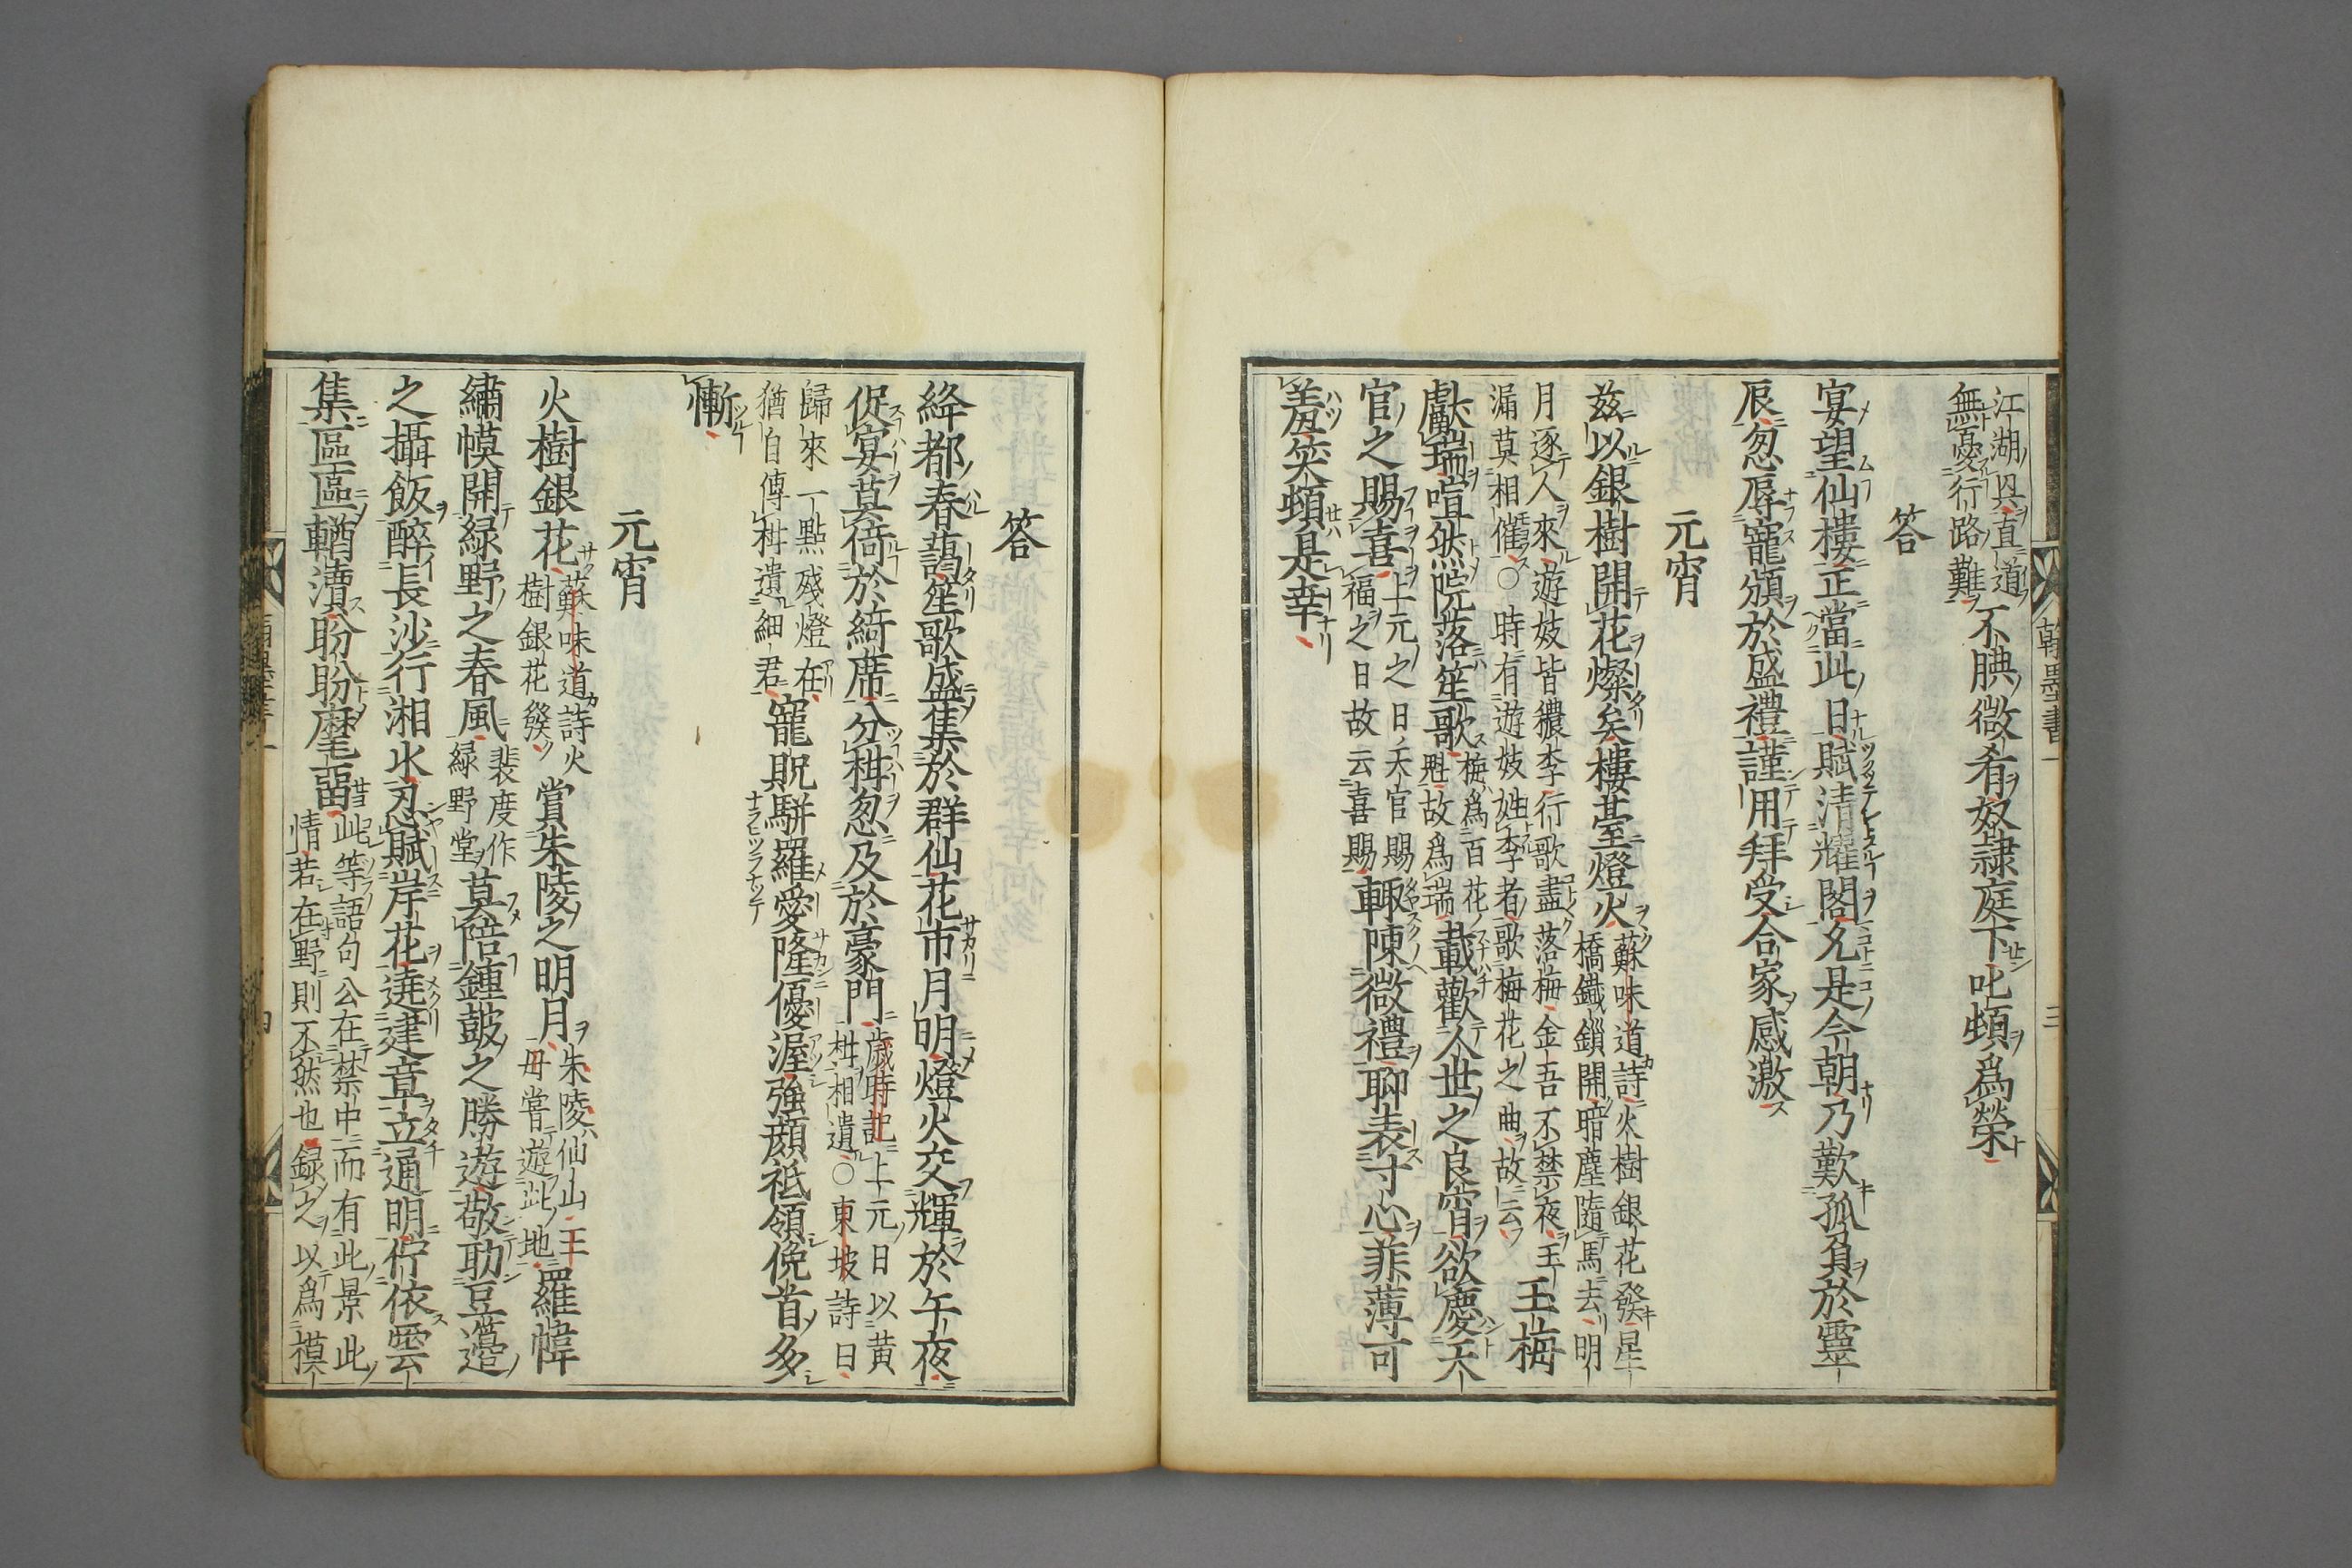 江湖丹直道
無憂行路難不腆微肴奴隷庭下叱頓爲榮
答
宴望仙樓正當此日賦清耀閣允是今朝乃歎孤負於靈
辰忽辱寵頒於盛禮謹用拜受合家感激
元宵
茲以銀樹開花燦矣樓臺燈火蘇味道詩火樹銀花發星
橋鐵鎖開暗塵隨馬去明
月逐人來遊妓皆穠李行歌盡落梅金吾不禁夜玉
漏莫相催○時有遊妓姓李者歌梅花之曲故云玉梅
獻瑞喧然院落笙歌梅爲百花
魁故爲瑞載歡人世之良宵欲慶天
官之賜喜上元之日天官賜
福之日故云喜賜輙陳微禮聊表寸心菲薄可
羞笑頓是幸
翰墨書一
三
答
絳都春藹笙歌盛集於群仙花市月明燈火交輝於午夜
促宴莫倚於綺席分柑忽及於豪門歲時記上元日以黃
柑相遺○東坡詩曰
歸來一點殘燈在
猶自傳柑遺細君寵貺駢羅愛隆優渥強顏祗領俛首多
慚
元宵
火樹銀花蘇味道詩火
樹銀花發賞朱陵之明月朱陵仙山王
母嘗遊此地羅幃
繡幙開綠野之春風裴度作
綠野堂莫陪鍾皷之勝遊敬助豆籩
之攝飯醉長沙行湘水忍賦岸花遶建章立通明佇依雲
集區區輶瀆盼盼麾畱此等語句公在禁中而有此景此
情若在野則不然也録之以爲模